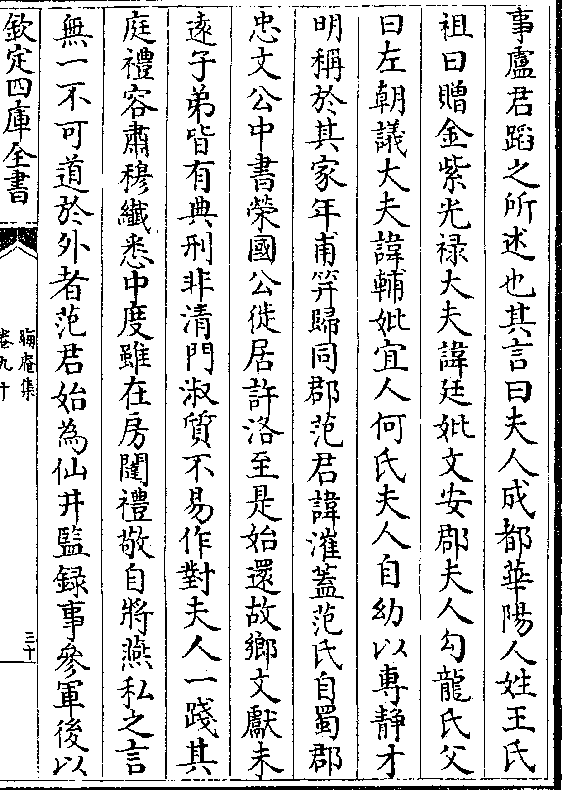 事盧君蹈之所述也其言曰夫人成都華陽人姓王氏
祖曰贈金紫光禄大夫諱廷妣文安郡夫人勾龍氏父
曰左朝議大夫諱輔妣宜人何氏夫人自幼以專静才
明稱於其家年甫筓歸同郡范君諱漼蓋范氏自蜀郡
忠文公中書榮國公徙居許洛至是始還故鄉文獻未
逺子弟皆有典刑非清門淑質不易作對夫人一踐其
庭禮容肅穆纎悉中度雖在房闥禮敬自將燕私之言
無一不可道於外者范君始為仙井監録事參軍後以
欽定四庫全書
晦庵集
卷九十
三十